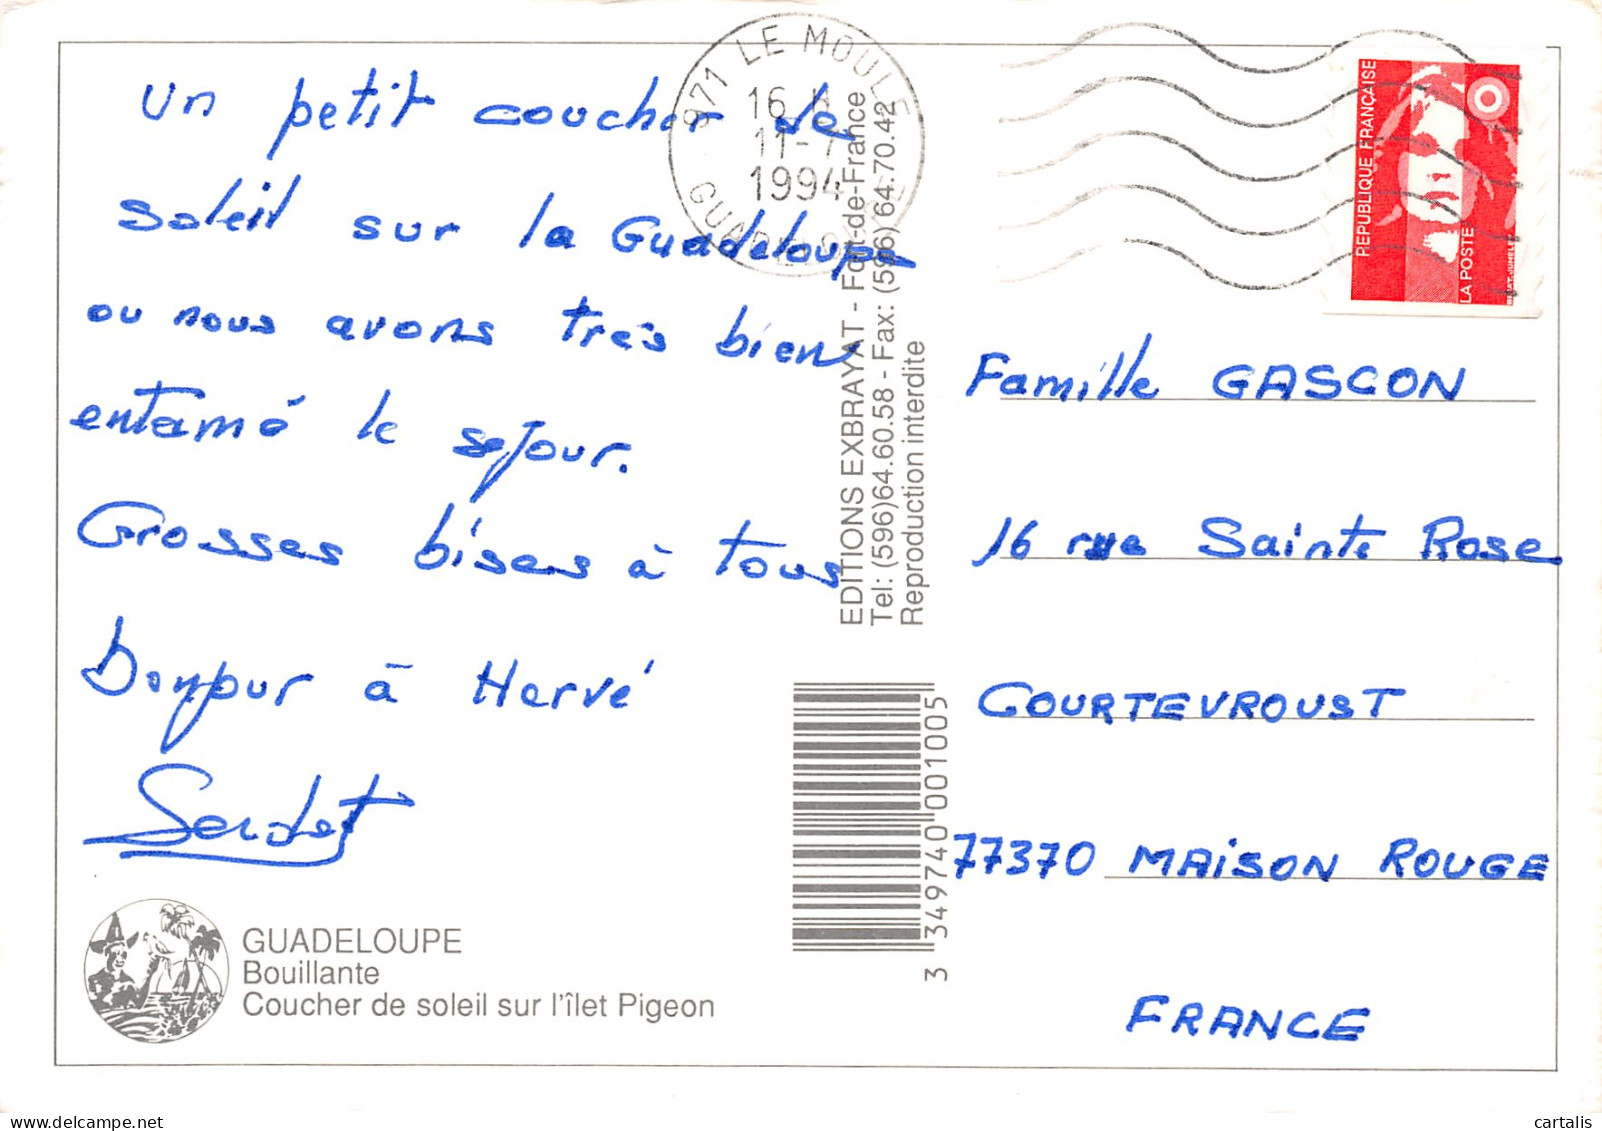 un petit coucher de
soleil sur la Guadeloupe
ou nous avons très bien
entamé le sejour.
Grosses bises à tous
Bonjour à Hervé
GUADELOUPE
Bouillante
Coucher de soleil sur l'îlet Pigeon
971 LE MOULE
16 H
11-7
1994
GUADELOUPE
EDITIONS EXBRAYAT - Fort-de-France
Tel: (596)64.60.58 - Fax: (596) 64.70.42
Reproduction interdite
3 349740 001005
REPUBLIQUE FRANÇAISE
LA POSTE
Famille GASCON
16 rue Sainte Rose
COURTEVROUST
77370 MAISON ROUGE
FRANCE
cartalis
delcampe.net